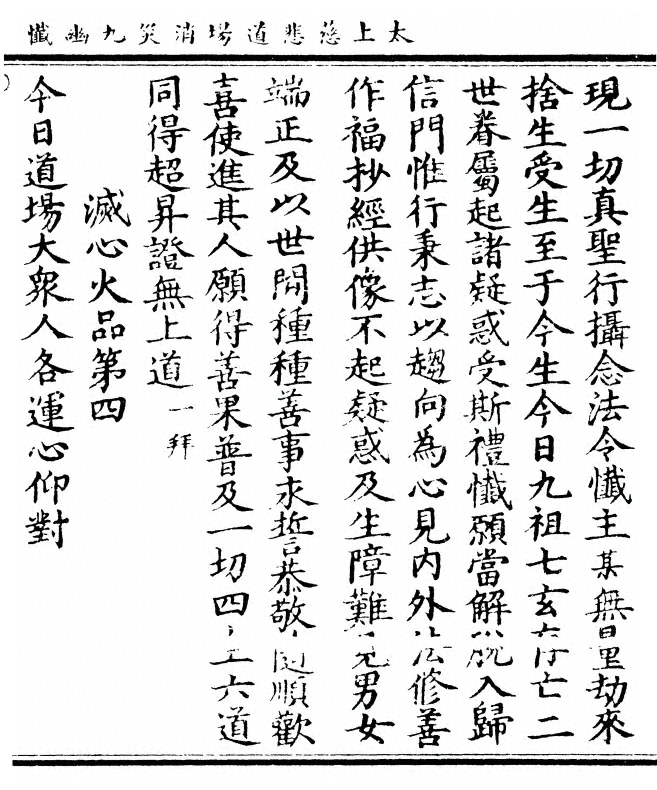 太上慈悲道場消災九幽懺
現一切真聖行攝念法令懺主某無量劫來
捨生受生至于今生今日九祖七玄存亡二
世眷屬起諸疑惑受斯禮懺願當解脫入歸
信門惟行秉志以趨向為心見內外法修善
作福抄經供像不起疑惑及生障難見男女
端正及以世間種種善事求誓恭敬隨順歡
喜使進其人願得善果普及一切四生六道
同得超昇證無上道一拜
滅心火品第四
今日道場大衆人各運心仰對